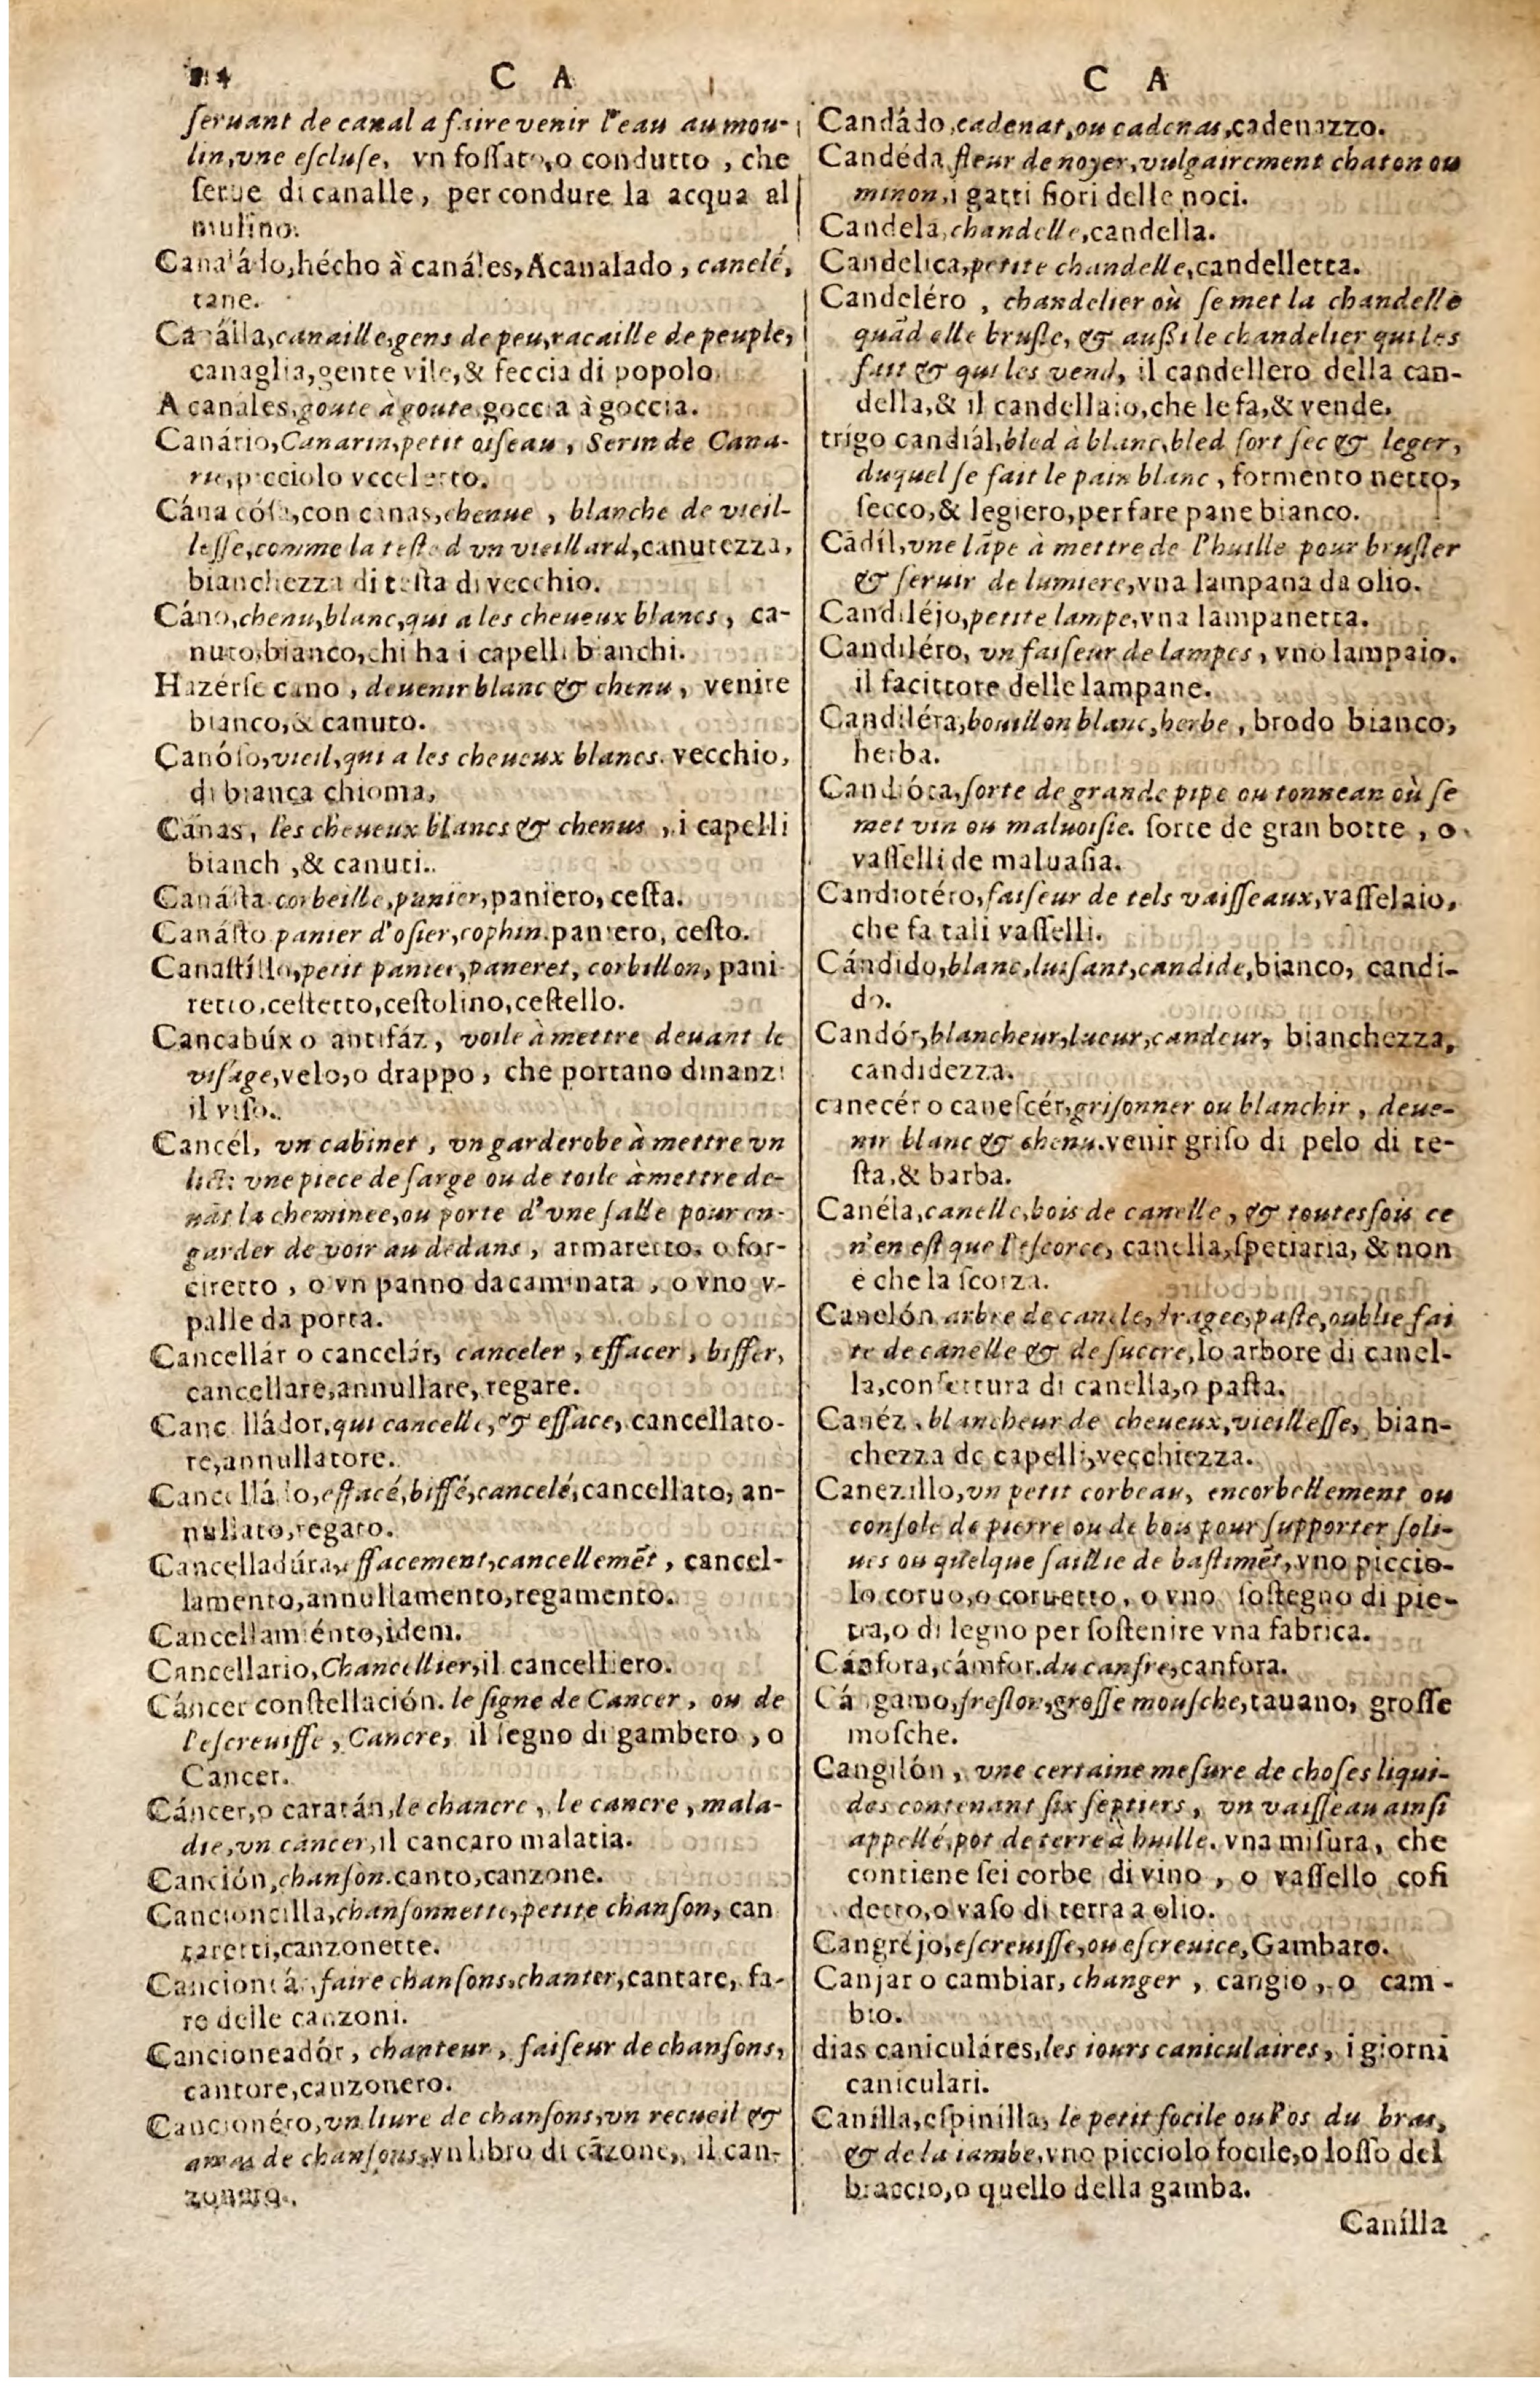 C A
ſeruant de canal a faire venir l'eau au mou-
lin, vne eſcluſe, vn foſſato, o condutto, che
ſerue di canalle, per condure la acqua al
mulino.
Canaládo, hécho à canáles, Acanalado, canelé,
tane.
Canálla, canaille, gens de peu, racaille de peuple,
canaglia, gente vile, & feccia di popolo
A canáles, goute à goute, goccia à goccia.
Canário, Canarin, petit oiſeau, Serin de Cana-
rie, picciolo vccelerto.
Cána cóſa, con canas, chenue, blanche de vieil-
leſſe, comme la teſte d vn vieillard, canutezza,
bianchezza di teſta di vecchio.
Cáno, chenu, blanc, qui a les cheueux blancs, ca-
nuto, bianco, chi ha i capelli bianchi.
Hazérſe cano, deuenir blanc & chenu, venire
bianco, & canuto.
Canóſo, vieil, qui a les cheueux blancs. vecchio,
di bianca chioma,
Cánas, les cheueux blancs & chenus, i capelli
bianch, & canuti.
Canáſta corbeille, panier, paniero, ceſta.
Canáſto panier d'oſier, cophin. paniero, ceſto.
Canaſtíllo, petit panier, paneret, corbillon, pani
retto, ceſtetto, ceſtolino, ceſtello.
Cancabúx o antifáz, voile à mettre deuant le
viſage, velo, o drappo, che portano dinanzi
il viſo.
Cancél, vn cabinet, vn garderobe à mettre vn
lict: vne piece de ſarge ou de toile à mettre de-
uāt la cheminee, ou porte d'vne ſalle pour en-
garder de voir au dedans, armaretto, o for-
ciretto, o vn panno da caminata, o vno v-
palle da porta.
Cancellár o cancelár, canceler, effacer, biffer,
cancellare, annullare, regare.
Canc lládor, qui cancelle, & efface, cancellato-
re, annullatore.
Cancelládo, effacé, biffé, cancelé, cancellato, an-
nullato, regato.
Cancelladúra, effacement, cancellemēt, cancel-
lamento, annullamento, regamento.
Cancellamiénto, idem.
Cancellario, Chancellier, il cancelliero.
Cáncer conſtellación. le ſigne de Cancer, ou de
l'eſcreuiſſe, Cancre, il ſegno di gambero, o
Cancer.
Cáncer, o caratán, le chancre, le cancre, mala-
die, vn cancer, il cancaro malatia.
Canción, chanſon. canto, canzone.
Cancioncilla, chanſonnette, petite chanſon, can
taretti, canzonette.
Cancioneár, faire chanſons, chanter, cantare, fa-
re delle canzoni.
Cancioneadór, chanteur, faiſeur de chanſons,
cantore, canzonero.
Cancionéro, vn liure de chanſons, vn recueil &
amas de chanſons, vn libro di cāzone, il can-
zonero.
C A
Candádo, cadenat, ou cadenas, cadenazzo.
Candéda fleur de noyer, vulgairement chaton ou
minon, i gatti fiori delle noci.
Candela, chandelle, candella.
Candelica, petite chandelle, candelletta.
Candeléro, chandelier où ſe met la chandelle
quād elle bruſle, & auſſi le chandelier qui les
fait & qui les vend, il candellero della can-
della, & il candellaio, che le fa, & vende.
trigo candiál, bled à blanc, bled fort ſec & leger,
duquel ſe fait le pain blanc, formento netto,
ſecco, & legiero, per fare pane bianco.
Cādíl, vne lāpe à mettre de l'huille pour bruſler
& ſeruir de lumiere, vna lampana da olio.
Candiléjo, petite lampe, vna lampanetta.
Candiléro, vn faiſeur de lampes, vno lampaio.
il facittore delle lampane.
Candiléra, bouillon blanc, herbe, brodo bianco,
herba.
Candióta, ſorte de grande pipe ou tonnean où ſe
met vin ou maluoiſie. ſorte de gran botte, o
vaſſelli de maluaſia.
Candiotéro, faiſeur de tels vaiſſeaux, vaſſelaio,
che fa tali vaſſelli.
Cándido, blanc, luiſant, candide, bianco, candi-
do.
Candór, blancheur, lueur, candeur, bianchezza,
candidezza.
canecér o caneſcér, griſonner ou blanchir, deue-
nir blanc & chenu. venir griſo di pelo di te-
ſta, & barba.
Canéla, canelle, bois de canelle, & toutesfois ce
n'en eſt que l'eſcorce, canella, ſpetiaria, & non
è che la ſcorza.
Canelón arbre de canele, dragee, paſte, oublie fai
te de canelle & de ſuccre, lo arbore di canel-
la, confettura di canella, o paſta.
Canéz, blancheur de cheueux, vieilleſſe, bian-
chezza de capelli, vecchiezza.
Canezillo, vn petit corbeau, encorbellement ou
conſole de pierre ou de bois pour ſupporter ſoli-
ues ou quelque ſaillie de baſtimēt, vno piccio-
lo coruo, o coruetto, o vno ſoſtegno di pie-
tra, o di legno per ſoſtenire vna fabrica.
Cánfora, cámfor. du canfre, canfora.
Cá gamo, freſlon, groſſe mouſche, tauano, groſſe
moſche.
Cangilón, vne certaine meſure de choſes liqui-
des contenant ſix ſeptiers, vn vaiſſeau ainſi
appellé, pot de terre à huille. vna miſura, che
contiene ſei corbe di vino, o vaſſello coſi
detto, o vaſo di terra a olio.
Cangréjo, eſcreuiſſe, ou eſcreuice, Gambaro.
Canjar o cambiar, changer, cangio, o cam-
bio.
dias caniculáres, les iours caniculaires, i giorni
caniculari.
Canílla, eſpinilla, le petit focile ou l'os du bras,
& de la iambe, vno picciolo focile, o loſſo del
braccio, o quello della gamba.
Canílla